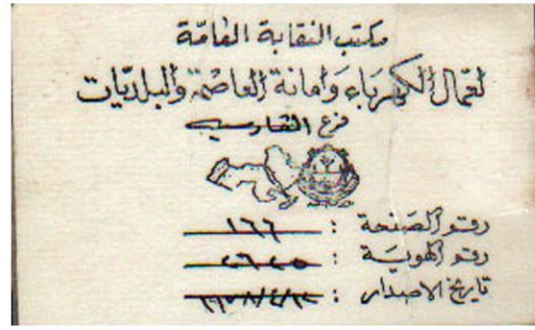 مكتب النقابة العامّة
لعمال الكهرباء وأمانة العاصمة والبلديّات
فرع القادسية
رقم الصفحة : ١٦٦
رقم الهويّة :
تاريخ الاصدار :